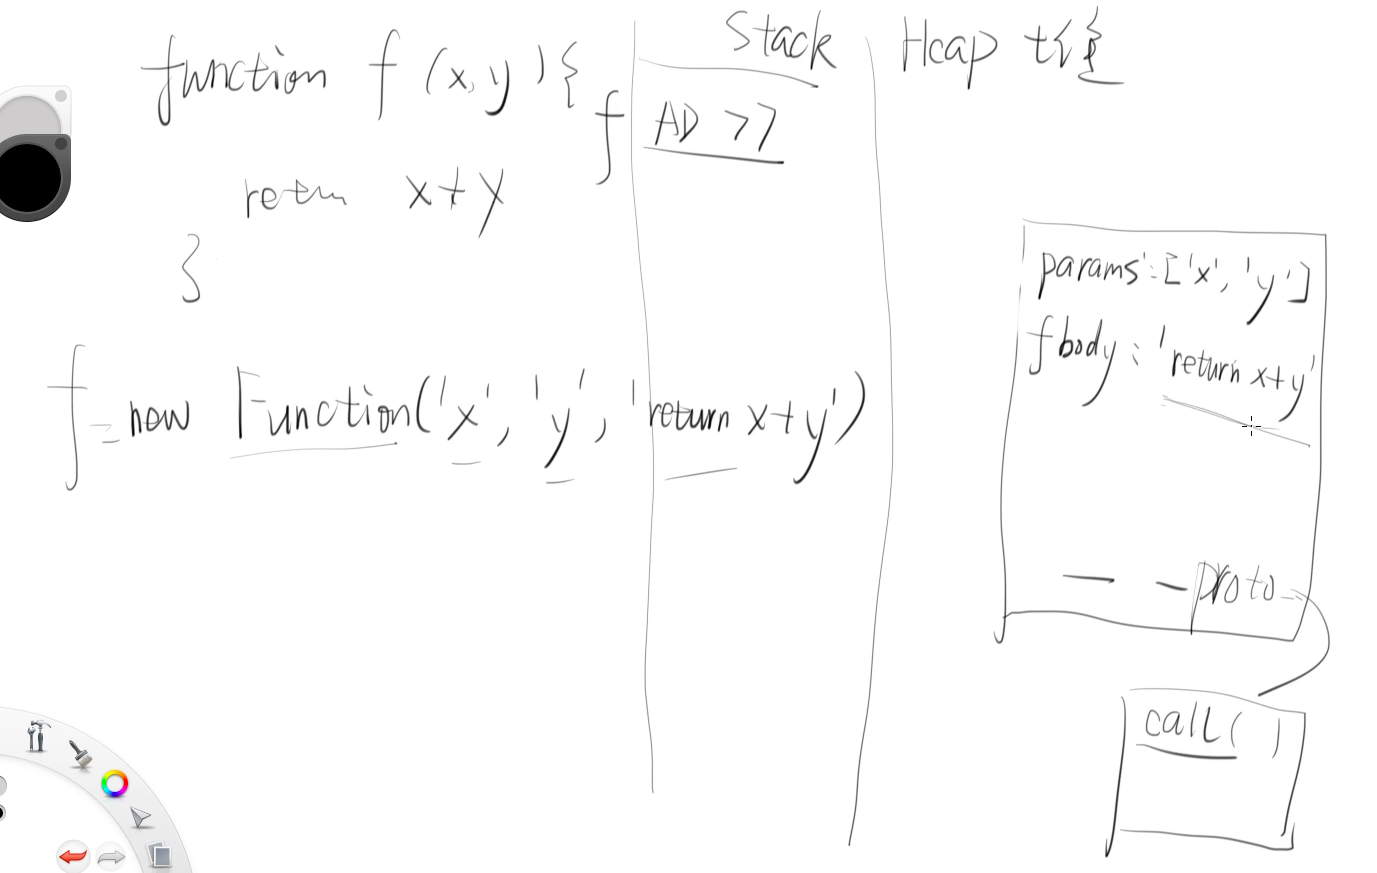 function f (x, y) {
return x+y
}
f = new Function('x', 'y', 'return x+y')
Stack
f AD 77
Heap
params: ['x', 'y']
fbody: 'return x+y'
— — proto
call( )